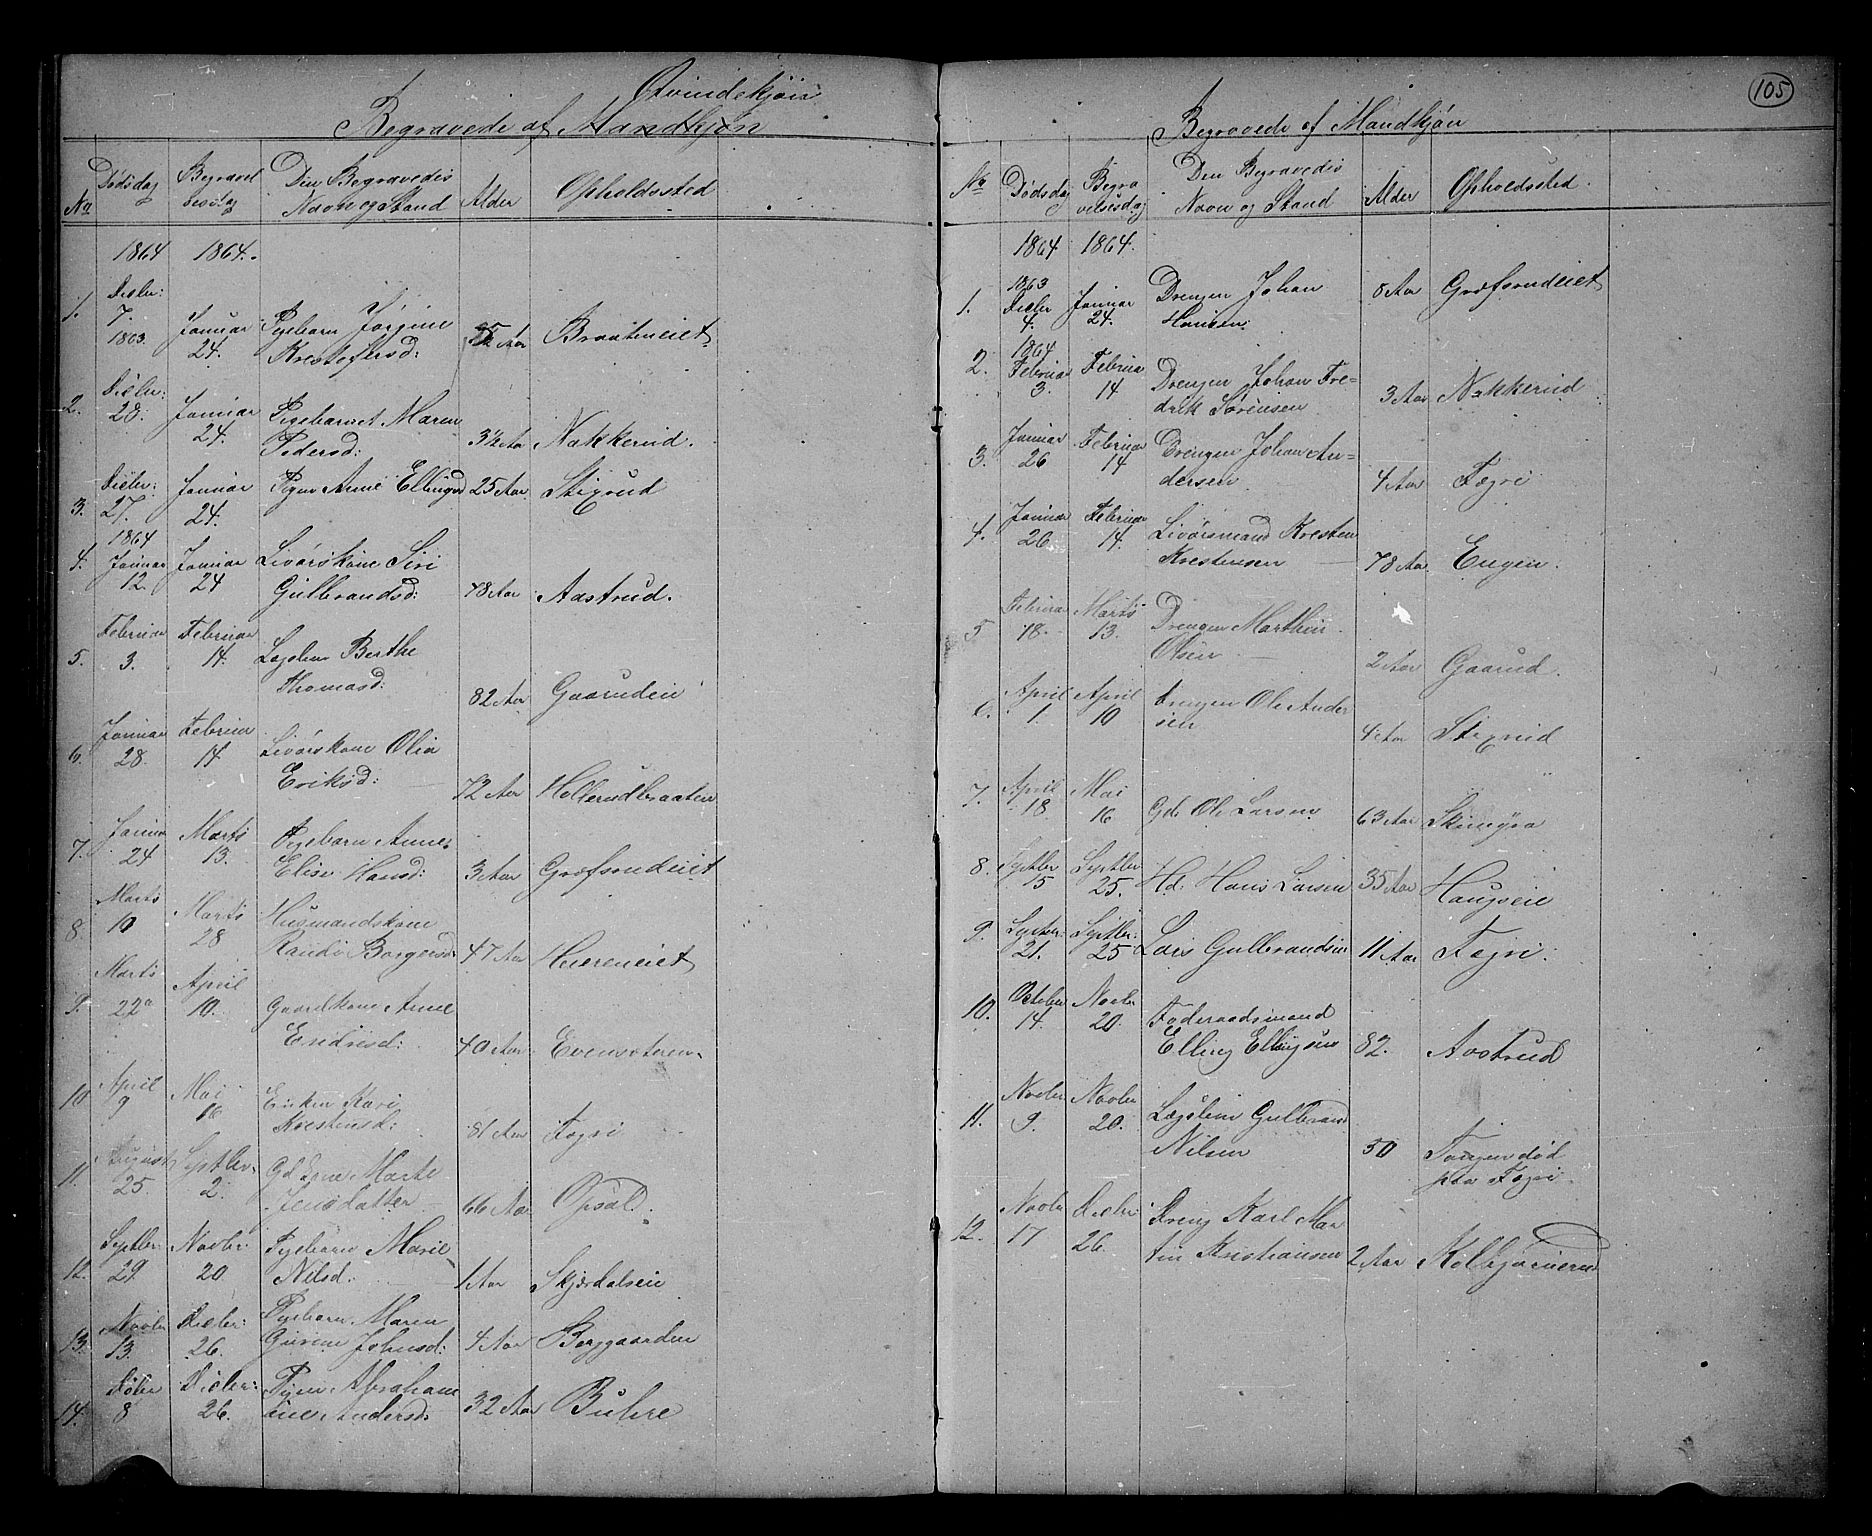 Qvindekjøn
Begravede af Mandkjøn
No Dødsdag Begravelsesdag Den Begravedes Navn og Stand Alder Opholdssted
1864 1864.
1. Decbr: 7. 1863. Januar 24. Pigebarn Jørgine Kristofersd: Aar Braateneiet.
2. Decbr: 28. Januar 24. Pigebarnet Maren Pedersd: 3½ Aar Nakkerud.
3. Decbr: 27. Januar 24. Pigen Anne Ellingsd 25 Aar Stixrud
1864
4. Januar 12. Januar 24 Livørskone Siri Gulbrandsd: 78 Aar Aastrud.
5. Februar 3. Februar 14. Lægslem Berthe Thomasd: 82 Aar Gaarudeie
6. Januar 28. Februar 14 Livørskone Olia Eriksd: 72 Aar Hollerudbraaten
7. Januar 24 Marts 13. Pigebarn Anne Elise Hansd: 3 Aar Grøfsrudeiet
8. Marts 10 Marts 28 Husmandskone Randi Borgersd: 47 Aar Huereneiet
9. Marts 22de April 10. Gaardkone Anne Endresd: 40 Aar Evensteren.
10. April 9 Mai 16 Enken Kari Krestensd: 81 Aar Fegri
11. August 25. Septbr. 2. Gd Marte Jensdatter 66 Aar Opsal.
12. Septbr: 29. Novbr: 20. Pigebarn Marie Nilsd: 1 Aar Skjærdalseie
13. Novbr 13. Decbr: 26. Pigebarn Maren Gurine Johnsd: 4 Aar Berggaarden
14. 8 Decbr: 26. Pigen Abrahamine Andersd: 32 Aar Buhre
105
Begravede af Mandkjøn
No Dødsdag Begravelsesdag Den Begravedes Navn og Stand Alder Opholdssted.
1864. 1864.
1. 1863 Decbr 4. Januar 24. Drengen Johan Hansen. 8 Aar Grøfsrudeiet
2. 1864 Februar 3. Februar 14 Drengen Johan Fre=drik Sørensen 3 Aar Nakkerud
3. Januar 26 Februar 14 Drengen Johan An=dersen 4 Aar Fægri
4. Januar 26. Februar 14. Livørsmand Kresten Krestensen 78 Aar Engen.
5 Februar 18. Marts 13. Drengen Marthin Olsen 2 Aar Gaarud.
6. April 1. April 10 Drengen Ole Andersen 4 Aar Stixrud
7. April 18 Mai 16 Gd. Ole Larsen 63 Aar Skimyra
8. Septbr 15 Septbr 25. Hd. Hans Larsen 35 Aar Haugseie
9. Septbr: 21. Septbr: 25 Lars Gulbrandsen 11 Aar Fegri.
10. October 14. Novbr 20. Føderaadsmand Elling Ellingsen 82. Aastrud
11. Novbr 9. Novbr 20. Lægslem Gulbrand Nilsen 50 død paa Fegri.
12. Novbr 17 Decbr 26. Dreng Karl Martin Kristiansen 2 Aar Kolbjørnerud